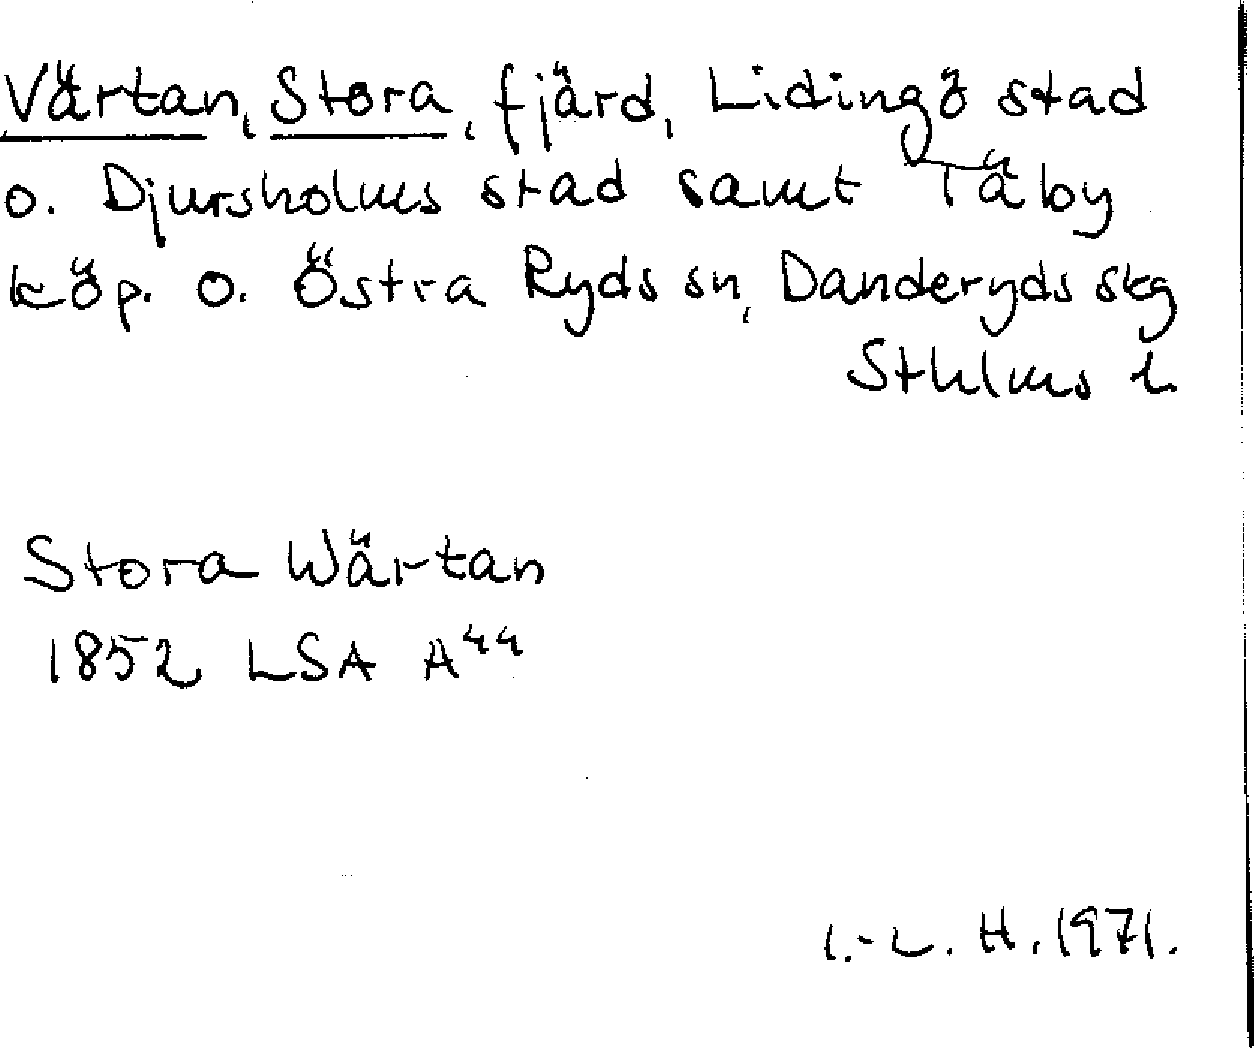 Värtan, Stora, fjärd, Lidingö stad
o. Djursholms stad samt Täby
köp. o. Östra Ryds sn, Danderyds skg
Sthlms l.
Stora Wärtan
1852 LSA A44
I.-L. H. 1971.